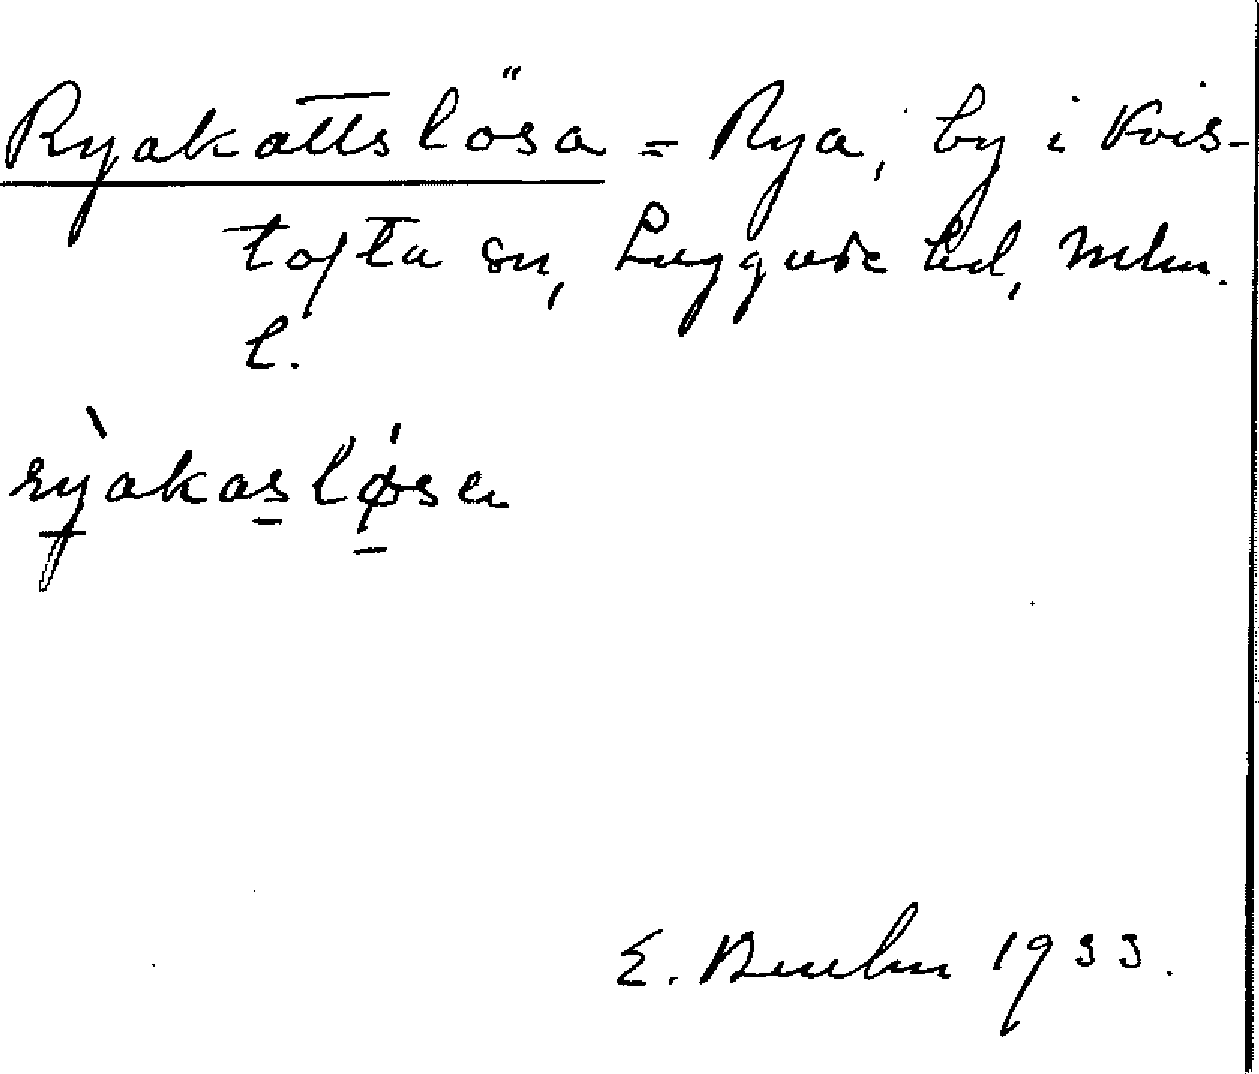 Ryakattslösa = Rya, by i Kvis-
tofta sn, Luggude hd, Mlm.
l.
rỳakaslǿsa
E. 1933.